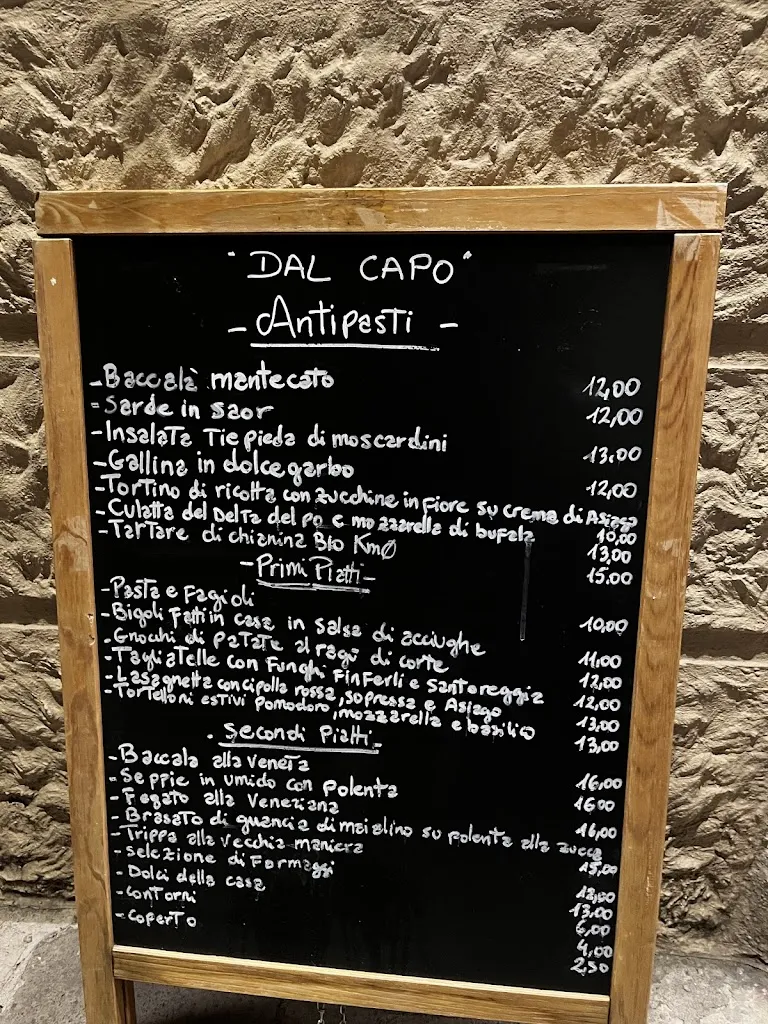 "DAL CAPO"
- Antipasti -
- Baccalà mantecato 12,00
- Sarde in saor 12,00
- Insalata Tiepida di moscardini 13,00
- Gallina in dolcegarbo 12,00
- Tortino di ricotta con zucchine in fiore su crema di Asiago 10,00
- Culatta del Delta del po e mozzarella di bufala 13,00
- Tartare di chianina Bio Km0 15,00
- Primi Piatti -
- Pasta e Fagioli 10,00
- Bigoli Fatti in casa in salsa di acciughe 11,00
- Gnocchi di patate al ragù di corte 12,00
- Tagliatelle con Funghi Finferli e Santoreggia 12,00
- Lasagnetta con cipolla rossa, sopressa e Asiago 13,00
- Tortelloni estivi Pomodoro, mozzarella e basilico 13,00
- Secondi Piatti -
- Baccala alla veneta 16,00
- Seppie in umido con polenta 16,00
- Fegato alla Veneziana 16,00
- Brasato di guancia di maialino su polenta alla zucca 15,00
- Trippa alla vecchia maniera 12,00
- Selezione di Formaggi 13,00
- Dolci della casa 6,00
- Contorni 4,00
- Coperto 2,50